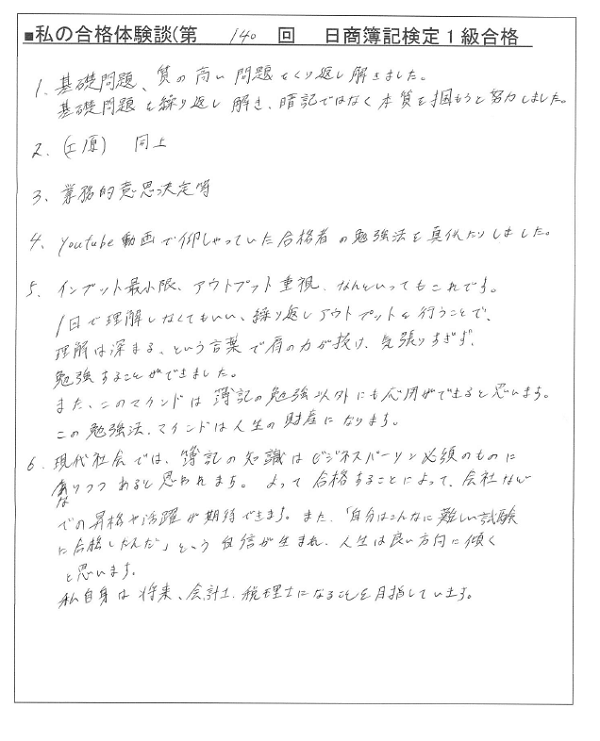 ■私の合格体験談(第 140 回 日商簿記検定1級合格
1. 基礎問題、質の高い問題をくり返し解きました。
基礎問題を繰り返し解き、暗記ではなく本質を掴もうと努力しました。
2. (工原) 同上
3. 業務的意思決定等
4. Youtube動画で仰しゃっていた合格者の勉強法を真似たりしました。
5. インプット最小限、アウトプット重視、なんといってもこれです。
1日で理解しなくてもいい、繰り返しアウトプットを行うことで、
理解は深まる、という言葉で肩の力が抜け、気張りすぎず、
勉強することができました。
また、このマインドは簿記の勉強以外にも応用ができると思います。
この勉強法、マインドは人生の財産になります。
6. 現代社会では、簿記の知識はビジネスパーソン必須のものに
なりつつあると思われます。よって合格することによって、会社など
での昇格や活躍が期待できます。また、「自分はこんなに難しい試験
に合格したんだ」という自信が生まれ、人生は良い方向に傾く
と思います。
私自身は将来、会計士、税理士になることを目指しています。